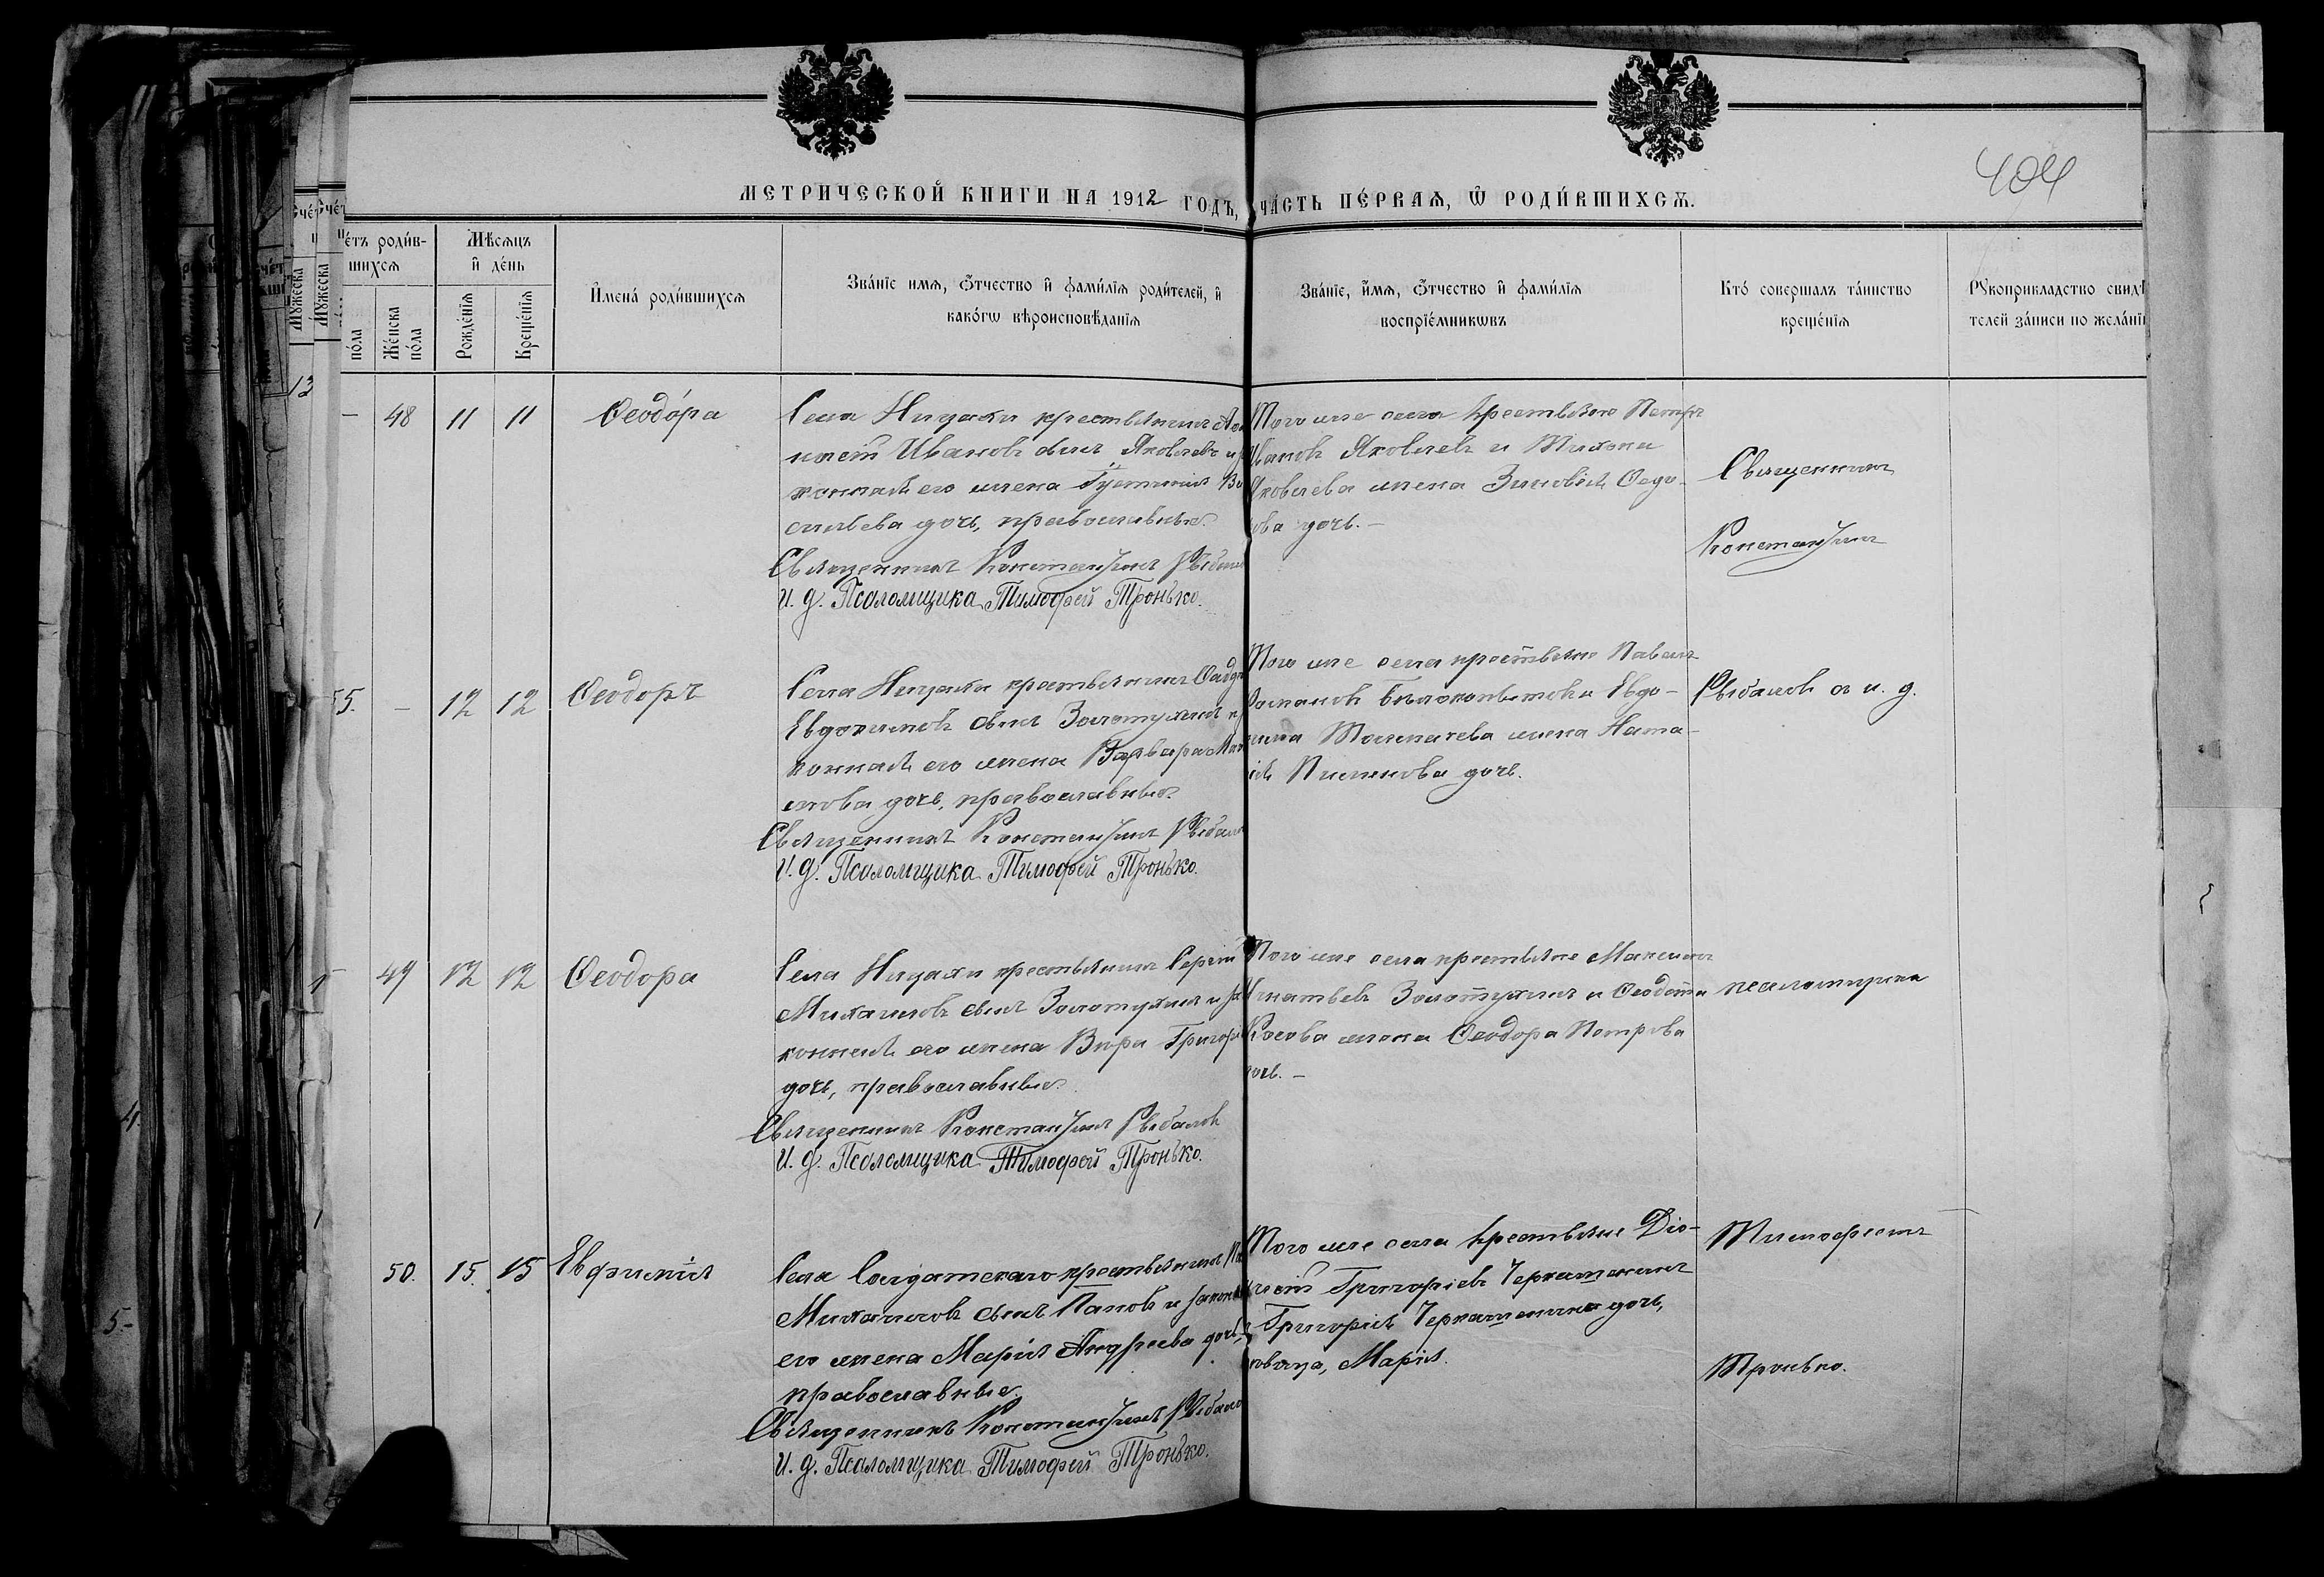 404
МЕТРИЧЕСКОЙ КНИГИ НА 1912 ГОДЪ, ЧАСТЬ ПЕ́РВАѦ, Ѿ РОДИ́ВШИХСѦ.
Мꙋжеска
Мꙋжеска
че́тъ роди́в-
шихсѧ
по́ла
Же́нска
по́ла
Мѣ́сѧцъ
и҆ де́нь
Рожде́нїѧ
Креще́нїѧ
И҆мена̀ роди́вшихсѧ
Зва́нїе имѧ, о҆́тчество и҆ фами́лїѧ роди́телей, и҆
како́гѡ вѣроисповѣ́данїѧ
Зва́нїе, и҆́мѧ, о҆́тчество и҆ фами́лїѧ
воспрїе́мникѡвъ
Кто̀ соверша́лъ та́инство
креще́нїѧ
Рꙋкоприкладство свидѣ
телей за́писи по жела́нїю
13
— 48 11 11 Ѳеодо́ра
Села Ницахи крестьянинъ
Ивановъ сынъ Яковлевъ и
конная его жена Іустинія Ва
сильева дочь, православные.
Священникъ Константинъ Рыбалов
И. д. Псаломщика Тимофей Тронько.
Того же села крестьяне Петръ
Ивановъ Яковлевъ и Тихона
Яковлева жена Зиновія Ѳедо-
ова дочь. —
Священникъ
Константинъ
55. — 12 12 Ѳеодоръ
Села Ницахи крестьянинъ
Евдокимовъ сынъ Золотухинъ и
конная его жена Варвара Мак
симова дочь, православные.
Священникъ Константинъ Рыбалов
И. д. Псаломщика Тимофей Тронько.
Того же села крестьяне Павелъ
Романовъ Бѣлокопытовъ и Евдо-
кима Толмачева жена Ната-
лія Пименова дочь.
Рыбаловъ съ и. д.
49 12 12 Ѳеодора
Села Ницахи крестьянинъ Сергій
Михаиловъ сынъ Золотухинъ и за
конная его жена Вѣра Григорі
дочь, православные.
Священникъ Константинъ Рыбаловъ
И. д. Псаломщика Тимофей Тронько.
Того же села крестьяне Максимъ
Игнатьевъ Золотухинъ и Ѳедота
Косова жена Ѳеодора Петрова
дочь. —
псаломщика
50. 15. 15 Евфимія
Села Солдатскаго крестьянинъ
Михаиловъ сынъ Паповъ и законная
его жена Марія Андреева дочь,
православные.
Священникъ Константинъ Рыбалов
И. д. Псаломщика Тимофей Тронько.
Того же села крестьяне Діо-
нисій Григоріевъ Черкашенинъ
Григорія Черкашенина дочь,
дѣвица, Марія.
Тимофеемъ
Тронько.
4.
5.-